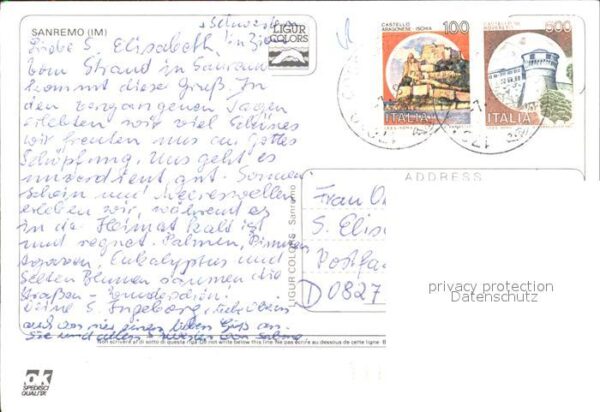 SANREMO (IM)
+ Schwestern
Liebe S. Elisabeth, in
Vom Strand in Sanremo
kommt diese Gruß. In
den vergangenen Tagen
erlebten wir viel Schönes
wir freuten uns an Gottes
Schöpfung. Uns geht es
unverdient gut. Sonnen
schein und Meereswellen
erleben wir, während es
in der Heimat kalt ist
und regnet. Palmen, Pinien
Eukalyptus und
selten Blumen säumen die
Straßen - wunderschön.
Deine S. Ingeborg
auch von mir einen lieben Gruß an
Sie und alles
LIGUR
COLORS
CASTELLO
ARAGONESE - ISCHIA
100
ITALIA
CASTELLO DI
ROVERETO
500
ITALIA
ADDRESS
LIGUR COLORS - Sanremo
Frau
S. Elis
Postfa
D 0827
privacy protection
Datenschutz
Non scrivere al di sotto di questa riga. Do not write below this line. Ne pas écrire au dessous de cette ligne.
ok
SPEDISCI
QUALITA'